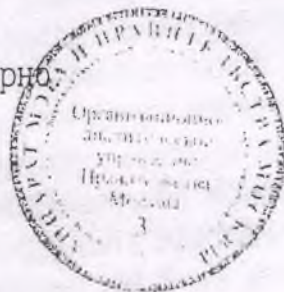 рно
АППАРАТ МЭРА И ПРАВИТЕЛЬСТВА МОСКВЫ
Организационно-
аналитическое
управление
Правительства
Москвы
3